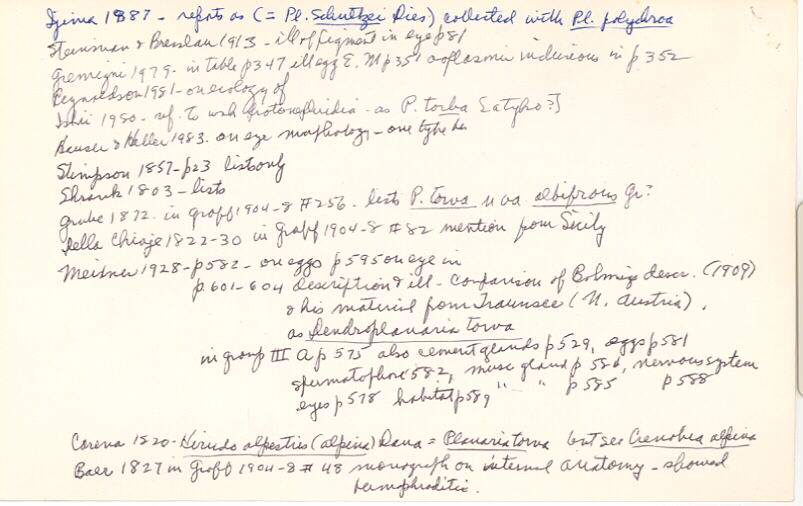 Ijima 1887 - refers as (= Pl. Schultzei Dies) collected with Pl. polychroa
Steinman & Bresslau 1913 - ill of pigment in eye p81
Gremigni 1979 - in table p347 ill egg E.M p351 ooplasmic inclusions in p.352
Reynoldson 1981 - on ecology of
Ishii 1980 - ref. to protonephridia - as P. torba [atypo?]
Hauser & Heller 1983. on eye morphology - one type
Stimpson 1857 - p23 lists only
Shrank 1803 - lists
Grube 1872. in Graff 1904-8 #256 - lists P. torva n va albifrons Gr?
Della Chiaje 1822-30 in Graff 1904-8 #82 mention from Sicily
Meixner 1928 - p582 - on eggs p595 on eye in
p.601-604 description & ill - comparison of Böhmigs descr. (1909)
& his material from Traunsee (N. Austria).
as Dendroplanaria torva
in group III A p575 also cement glands p529, eggs p581
spermatophore 582, musc gland p 586, nervous system
eyes p578 habitat p589 " " p 585 p 588
Carena 1820 - Hirudo alpestris (alpina) Dana = Planaria torva but see Crenobia alpina
Baer 1827 in Graff 1904-8 # 48 monograph on internal anatomy - showed
hermaphroditic.